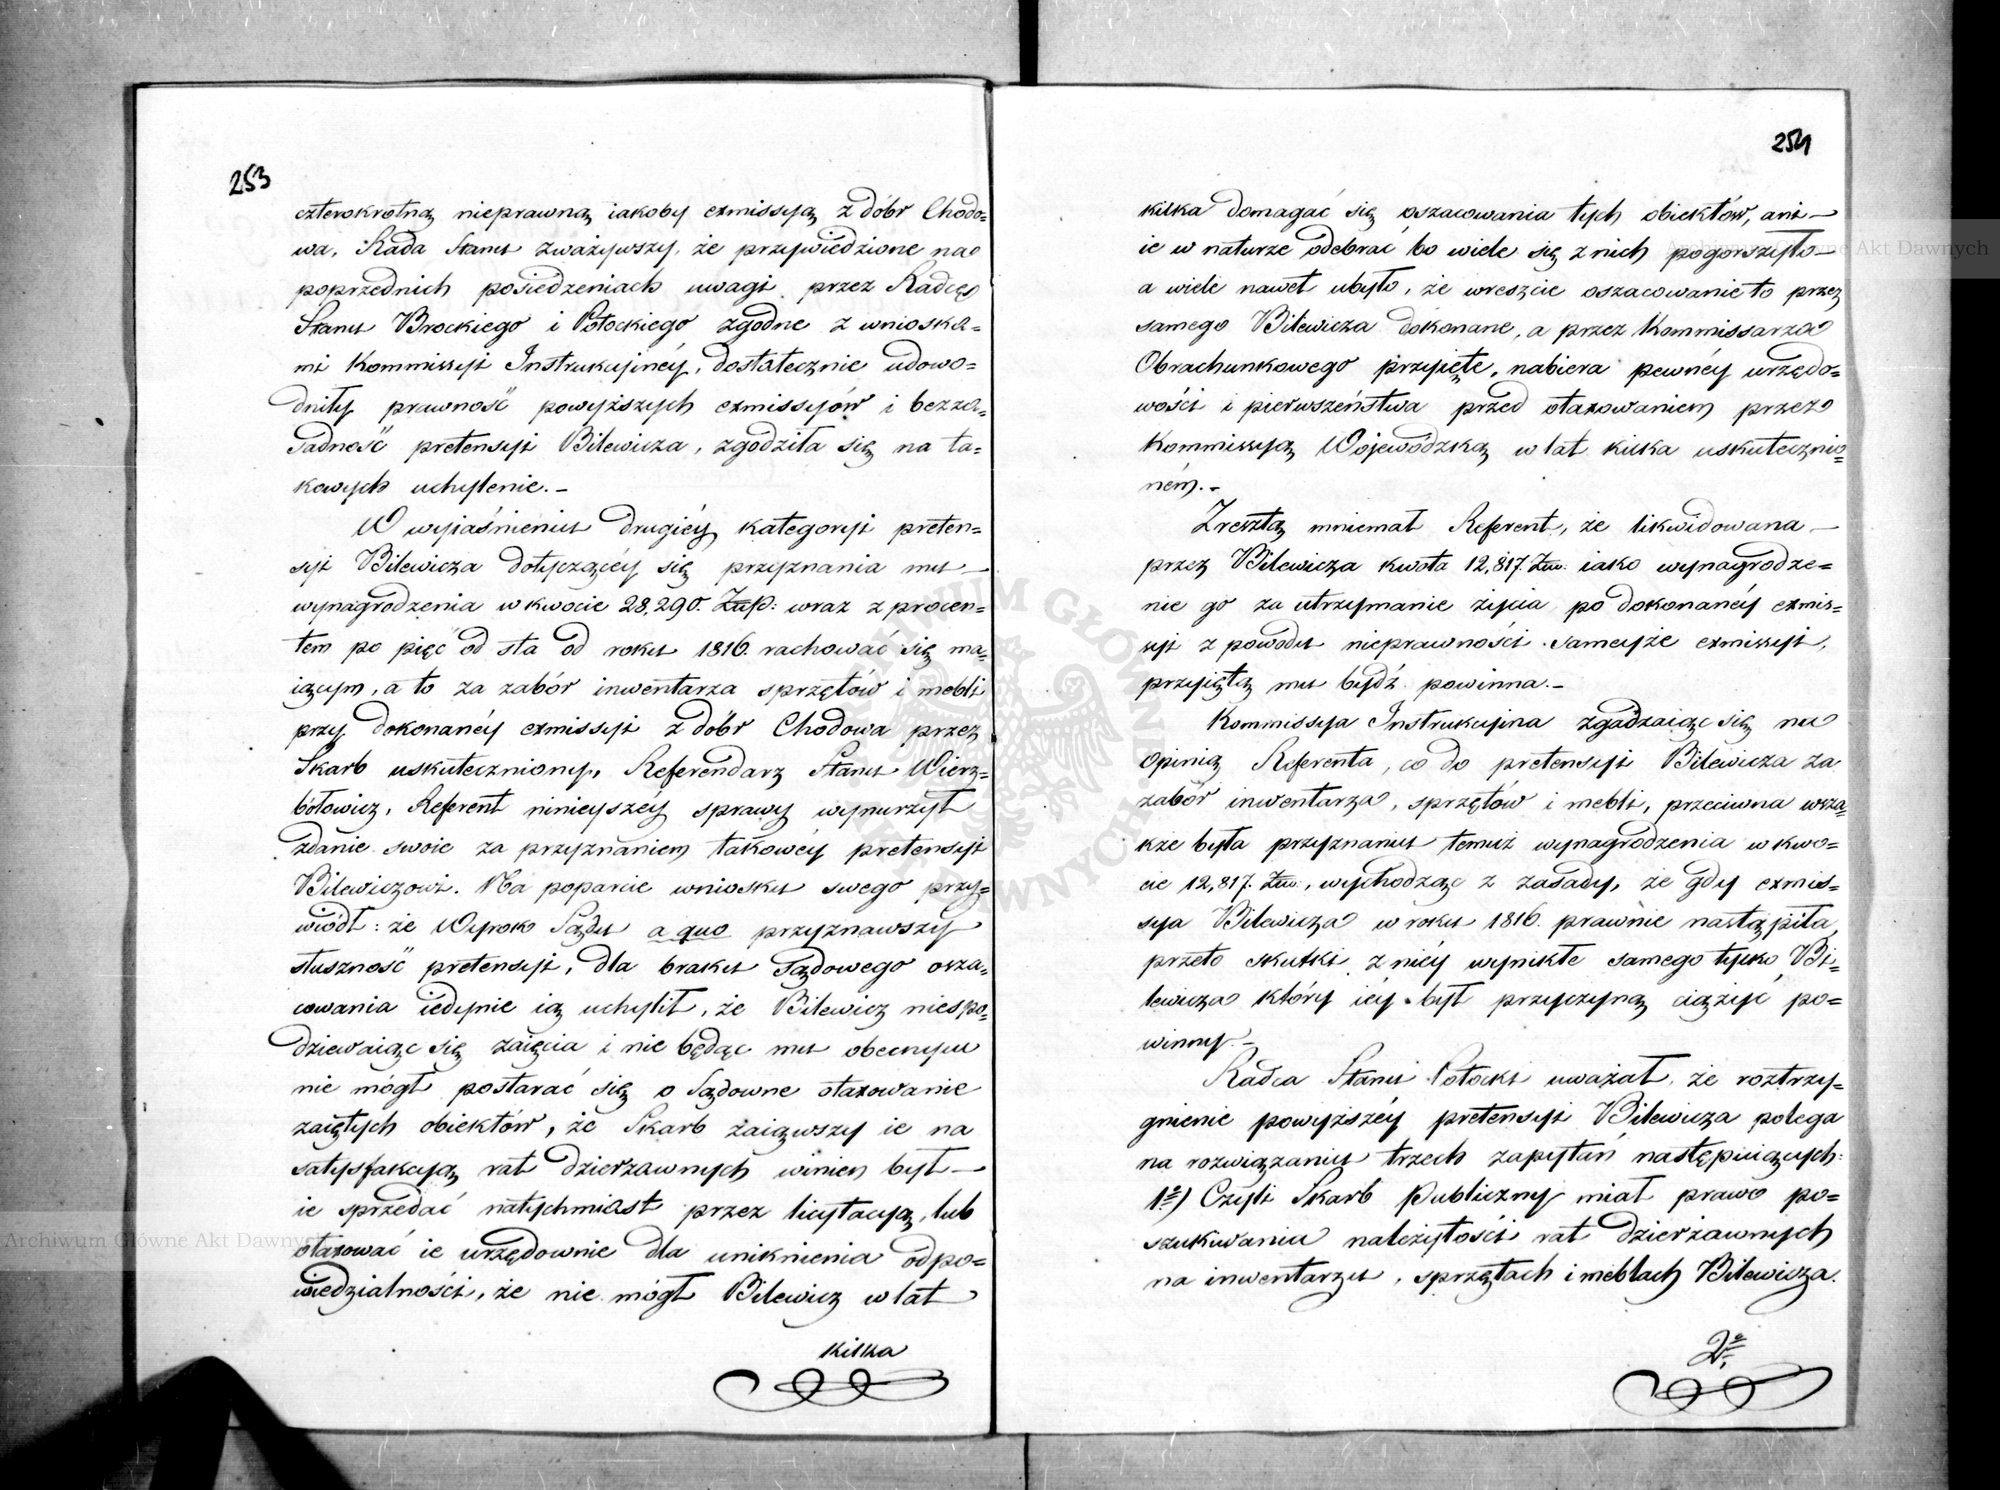 253
czterokrotną nieprawną iakoby exmissyą z dóbr Chodo=
wa, Rada Stanu zważywszy, że przywiedzione na
poprzednich posiedzeniach uwagi przez Radcę
Stanu Brockiego i Potockiego zgodne z wnioska=
mi Kommissyi Instrukcyinéy, dostatecznie udowo=
dniły prawność powyższych exmissyów i bezza=
sadność pretensyi Bilewicza, zgodziła się na ta=
kowych uchylenie.-
W wyiaśnieniu drugiéy kategoryi preten=
syi Bilewicza dotyczącéy się przyznania mu
wynagrodzenia w kwocie 28,290. Złłp: wraz z procen=
tem po pięć od sta od roku 1816. rachować się ma=
iącym, a to za zabór inwentarza sprzętów i mebli
przy dokonanéy exmissyi z dóbr Chodowa przez
Skarb uskutecznionéy, Referendarz Stanu Wierz=
bołowicz, Referent ninieyszéy sprawy wynurzył
zdanie swoie za przyznaniem takowéy pretensyi
Bilewiczowi. Na poparcie wniosku swego przy=
wiódł: że Wyrok Sądu a quo przyznawszy
słuszność pretensyi, dla braku Sądowego osza=
cowania iedynie ią uchylił, że Bilewicz niespo=
dziewaiąc się zaięcia i nie będąc mu obecnym
nie mógł postarać się o Sądowne otaxowanie
zaiętych obiektów, że Skarb zaiąwszy ie na
satysfakcyą rat dzierzawnych winien był
ie sprzedać natychmiast przez licytacyą, lub
otaxować ie urzędownie dla uniknienia odpo=
wiedzialności, że nie mógł Bilewicz w lat
kilka
254
kilka domagać się oszacowania tych obiektów, ani
ie w naturze odebrać bo wiele się z nich pogorszyło
a wiele nawet ubyło, że wreszcie oszacowanie to przez
samego Bilewicza dokonane, a przez Kommissarza
Obrachunkowego przyięte, nabiera pewnéy urzędo=
wości i pierwszeństwa przed otaxowaniem przez
Kommissyą Wojewódzką w lat kilka uskutecznio=
ném.-
Zresztą mniemał Referent, że likwidowana
przez Bilewicza kwota 12,817. Złłp. iako wynagrodze=
nie go za utrzymanie życia po dokonanéy exmis=
syi z powodu nieprawności samejże exmissyi,
przyiętą mu bydź powinna.-
Kommissya Instrukcyina zgadzaiąc się na
opinią Referenta, co do pretensyi Bilewicza za
zabór inwentarza, sprzętów i mebli, przeciwna wsza=
kże była przyznaniu temuż wynagrodzenia w kwo=
cie 12,817. Złłp., wychodząc z zasady, że gdy exmis=
sya Bilewicza w roku 1816. prawnie nastąpiła,
przeto skutki z niéy wynikłe samego tylko Bi=
lewicza który iéy był przyczyną ciążyć po=
winny.-
Radca Stanu Potocki uważał, że roztrzy=
gnienie powyższéy pretensyi Bilewicza polega
na rozwiązaniu trzech zapytań następuiących:
1º) Czyli Skarb Publiczny miał prawo po=
szukiwania należytości rat dzierżawnych
na inwentarzu, sprzętach i meblach Bilewicza.
2º
Archiwum Główne Akt Dawnych